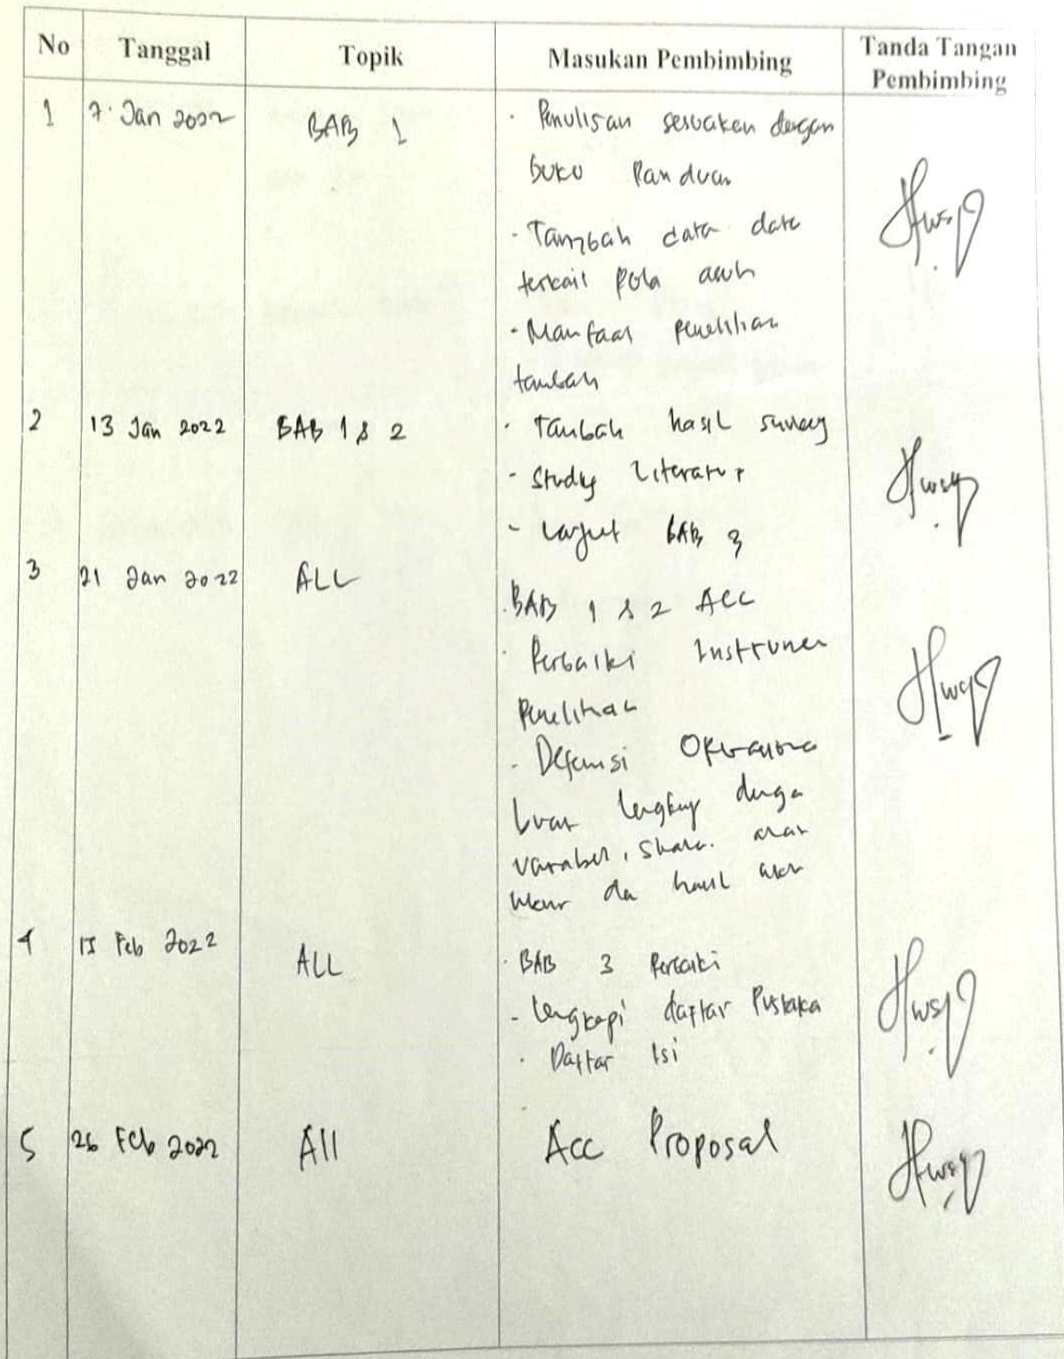 No Tanggal Topik Masukan Pembimbing Tanda Tangan
Pembimbing
1 7. Jan 2022 BAB 1 · Penulisan sesuaken dengan
buku Panduan
- Tambah data data
terkait pola asuh
- Manfaat penelitian
tambah
2 13 Jan 2022 BAB 1 & 2 · Tambah hasil survey
- Study Literatur
- Lanjut BAB 3
3 21 Jan 2022 ALL
· BAB 1 & 2 ACC
· Perbaiki Instrumen
Penelitian
- Defenisi Operasional
buat lengkap dengan
variabel, skala. alat
ukur dan hasil ukur
4 15 Feb 2022 ALL · BAB 3 Perbaiki
- Lengkapi daftar Pustaka
· Daftar Isi
5 26 Feb 2022 All Acc Proposal